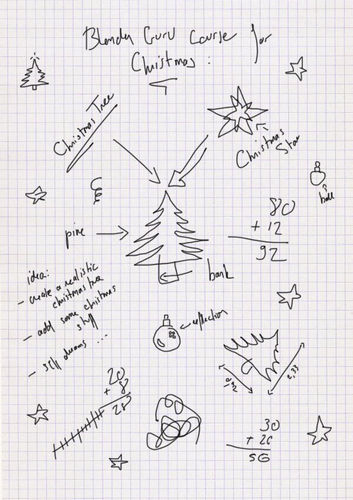 Blender Guru Course for
Christmas:
Christmas Tree
Christmas
Star
ball
80
+ 12
92
pine
bark
idea:
- create a realistic
christmas tree
- add some christmas
stuff
- sell dreams ...
reflection
20
+ 8
28
30
+ 26
56